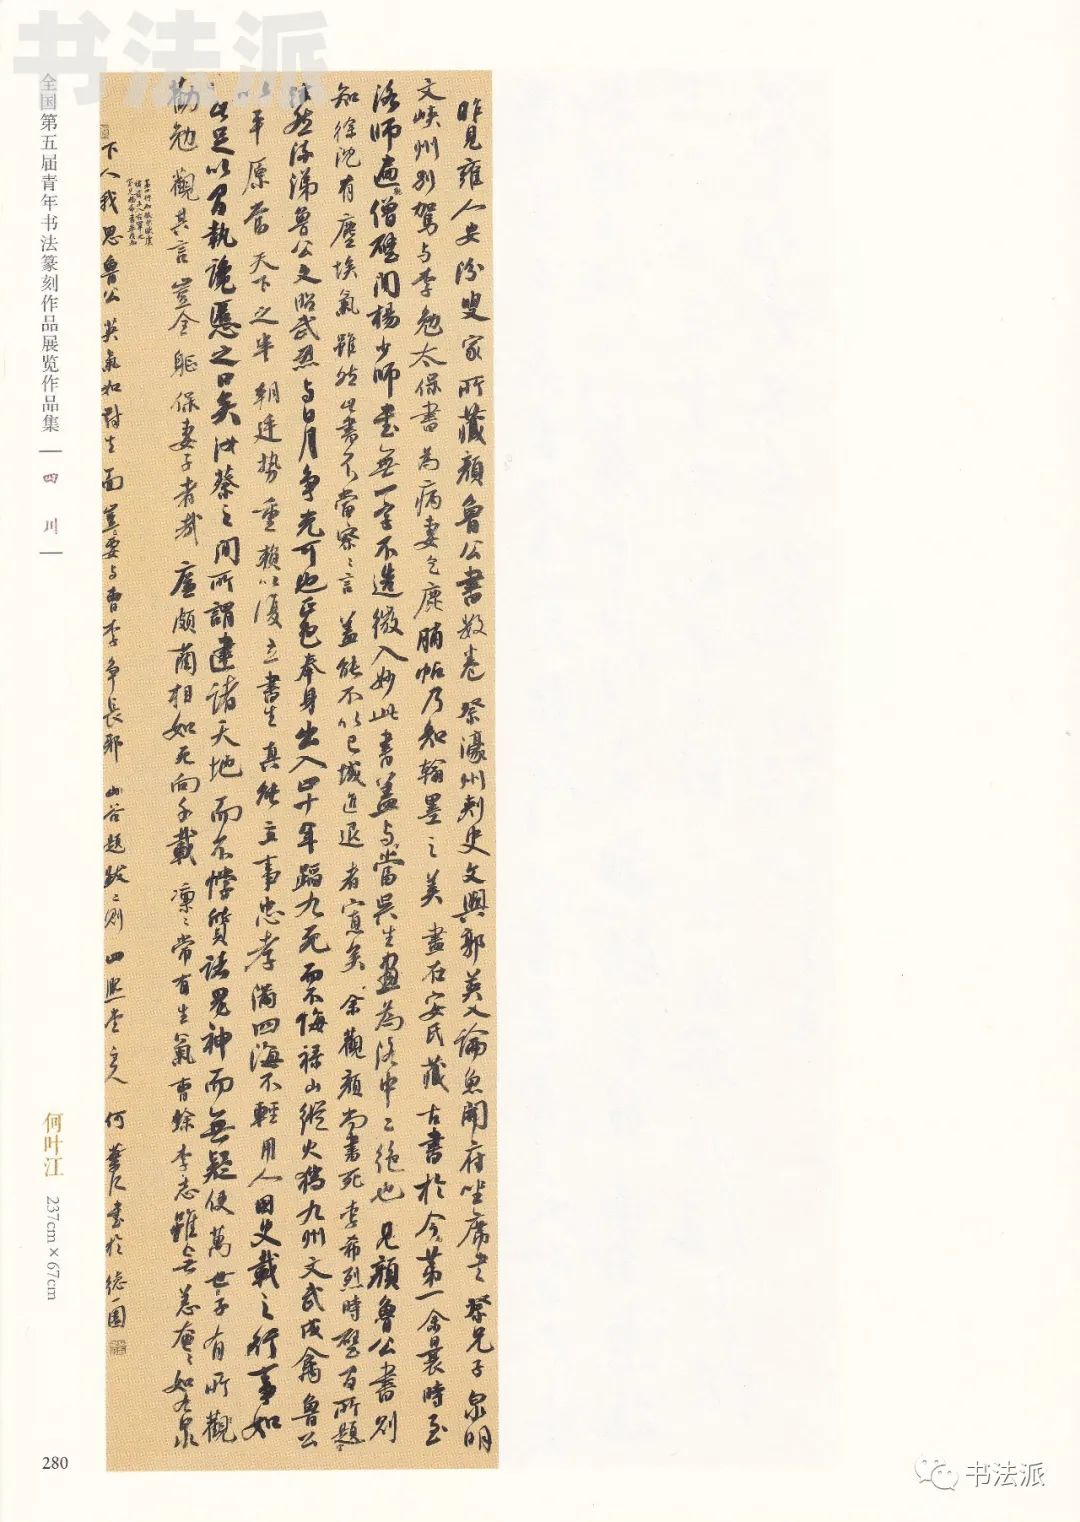 书法派
全国第五届青年书法篆刻作品展览作品集
四川
昨見雍人安汾叟家所藏顏魯公書數卷祭濠州刺史文與郭英乂論魚開府坐席書祭兄子泉明
文峽州别駕與李勉太保書為病妻乞鹿脯帖乃知翰墨之美盡在安氏藏古書於今第一余曩時至
洛師遍僧壁間楊少師書無一字不造微入妙此書蓋與當吳生畫為洛中二絕也見顏魯公書則
知徐沈有塵埃氣雖然此書不當察々言蓋能不以己域進退者寡矣余觀顏尚書死李希烈時壁間所題
泫然流涕魯公文昭武烈與日月爭光可也正色奉身出入四十年蹈九死而不悔祿山縱火獵九州文武成禽魯公
以平原當天下之半朝廷勢重賴以復立書生真能立事忠孝滿四海不輕用人國史載之行事如
此足以間執讒慝之口矣汝蔡之間所謂建諸天地而不悖質諸鬼神而無疑使萬世子有所觀
勸勉觀其言豈全軀保妻子者哉廉頗藺相如死向千載凜々常有生氣曹蜍李志雖無恙奄々如九泉
下人我思魯公英氣如對生面豈要與曹李爭長邪山谷題跋二則四照堂主人何葉江書於
何叶江
237cm×67cm
280
书法派